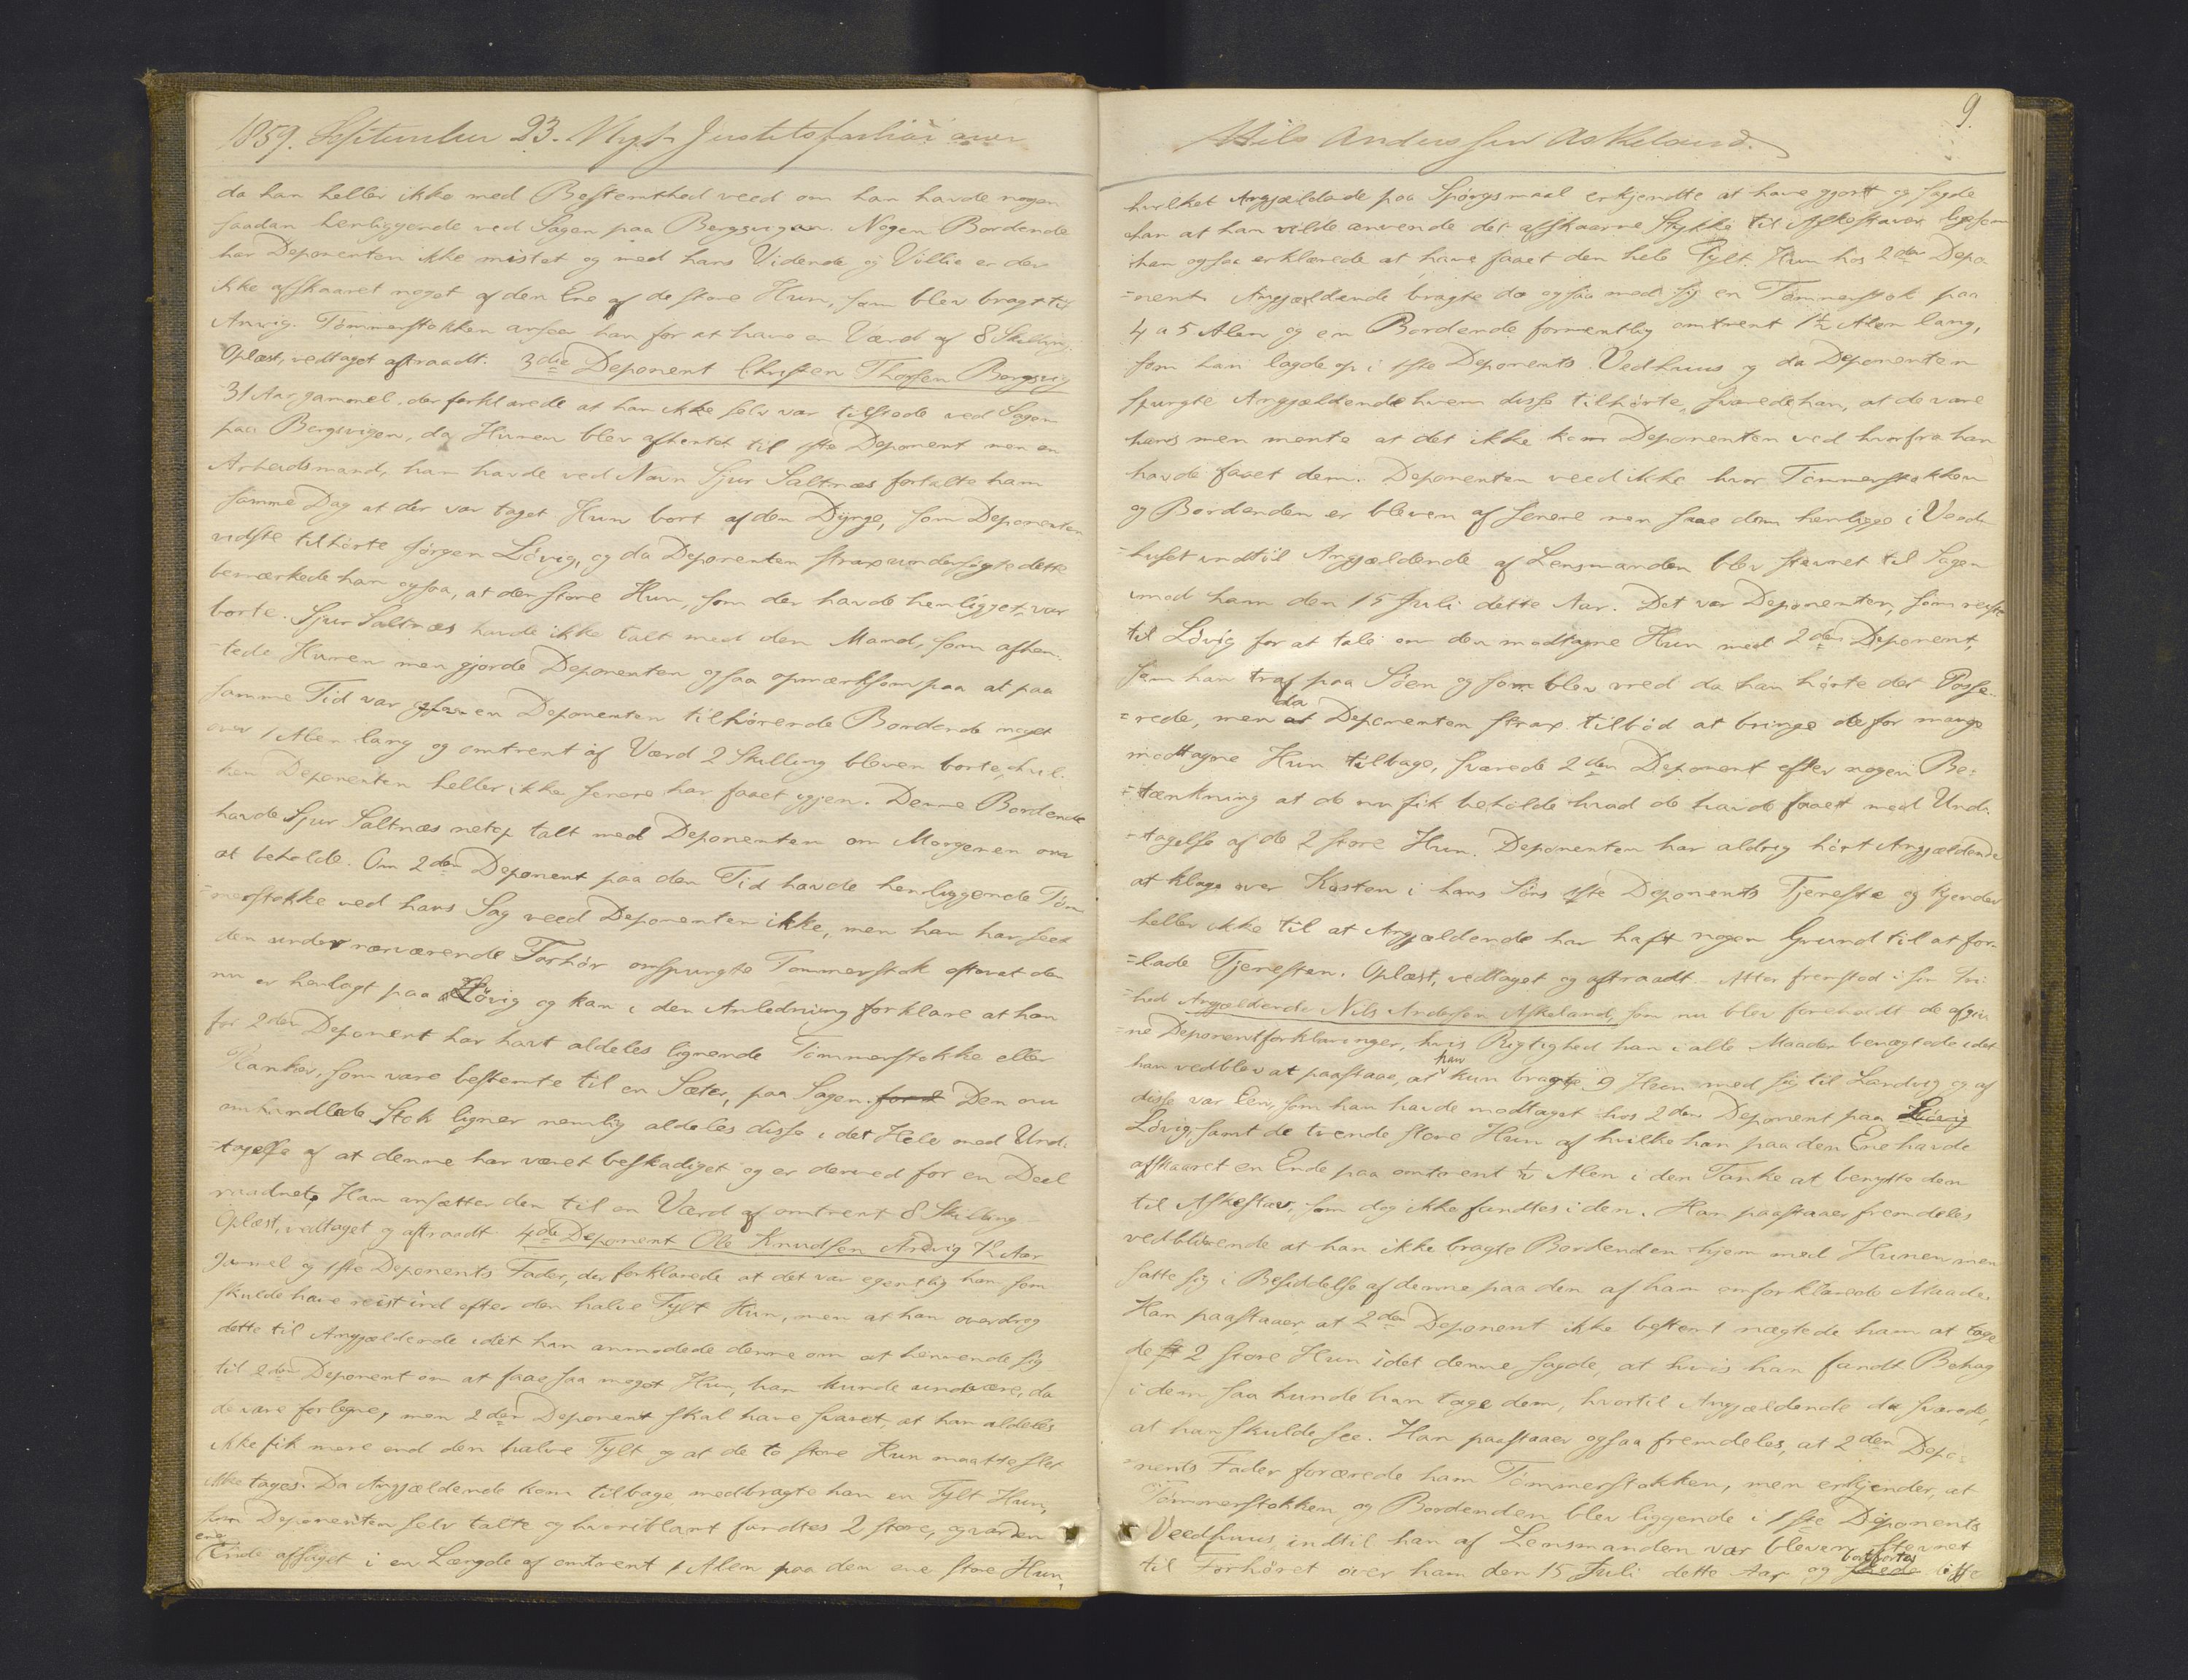 1859. September 23. Justitsforhör over
da han heller ikke med Bestemthed veed om han havde nogen
saadan henliggende ved Sagen paa Bergsvigen. Nogen Bordende
har Deponenten ikke mistet og med hans Vidende og Villie er der
ikke afskaaret noget af den Ene af de store Hun, som blev bragt til
Arvig. Tömmerstokken ansaa han for at have en Værd af 8 Skilling
Oplæst, vedtaget aftraadt. 3die Deponent Christen Thorsen Bergsvig
31 Aar gammel, der forklarede at han ikke selv var tilstede ved Sagen
paa Bergsvigen, da Hunen blev afhentet til 1ste Deponent men en
Arbeidsmand, han havde ved Navn Sjur Saltnæs fortalte ham
samme Dag at der var taget Hun bort af den Dynge, som Deponenten
vidste tilhörte Jörgen Lövig, og da Deponenten strax undersögte dette
bemærkede han ogsaa, at den store Hun, som der havde henligget, var
borte. Sjur Saltnæs havde ikke talt med den Mand, som afhen-
-tede Hunen men gjorde Deponenten ogsaa opmærksom paa at paa
samme Tid var en Deponenten tilhörende Bordende noget
over 1 Alen lang og omtrent af Værd 2 Skilling bleven borte, hvil-
-ken Deponenten heller ikke senere har faaet igjen. Denne Bordende
havde Sjur Saltnæs netop talt med Deponenten om Morgenen om
at beholde. Om 2den Deponent paa den Tid havde henliggende Töm-
-merstokke ved hans Sag veed Deponenten ikke, men han har seet
den under nærværende Forhör omspurgte Tömmerstok efterat den
nu er henlagt paa Lövig og kan i den Anledning forklare at han
for 2den Deponent har havt aldeles lignende Tömmerstokke eller
Planker, som vare bestemte til en Sæter, paa Sagen. Den nu
omhandlede Stok ligner nemlig aldeles disse i det Hele med Und-
-tagelse af at denne har været beskadiget og er derved for en Deel
raadnet. Han ansætter den til en Værd af omtrent 8 Skilling
Oplæst, vedtaget og aftraadt. 4de Deponent Ole Knudsen Ardvig 72 Aar
gammel og 1ste Deponents Fader, der forklarede at det var egentlig ham, som
skulde have reist ind efter den halve Tylt Hun, men at han overdrog
dette til Angjældende idet han anmodede denne om at henvende sig
til 2den Deponent om at faae saa meget Hun, han kunde undvære, da
de vare forlegne, men 2den Deponent skal have svaret, at han aldeles
ikke fik mere end den halve Tylt og at de to store Hun maatte slet
ikke tages. Da Angjældende kom tilbage medbragte han en Tylt Hun,
som Deponenten selv talte og hvoriblant fandtes 2 store, og var den
ene
Ende afsaget i en Længde af omtrent 1 Alen paa den ene store Hun,
9.
Nils Anderssen Askeland.
hvilket Angjældende paa Spörgsmaal erkjendte at have gjort og sagde
han at han vilde anvende det afskaarne Stykke til Askestaver ligesom
han ogsaa erklærede at have faaet den hele Tylt Hun hos 2den Depo
-nent. Angjældende bragte da ogsaa med sig en Tömmerstok paa
4 a 5 Alen og en Bordende formentlig omtrent 1½ Alen lang,
som han lagde op i 1ste Deponents Vedhuus og da Deponenten
spurgte Angjældende hvem disse tilhörte, svarede han, at de vare
hans men mente at det ikke kom Deponenten ved hvorfra han
havde faaet dem. Deponenten veed ikke hvor Tömmerstokken
og Bordenden er bleven af senere men saae dem henligge i Ved-
-huset indtil Angjældende af Lensmanden blev stevnet til Sagen
imod ham den 15 Juli dette Aar. Det var Deponenten, som reiste
til Lövig for at tale om den modtagne Hun med 2den Deponent,
som han traf paa Söen og som blev vred da han hörte det Passe-
da
=rede, men at Deponenten strax tilböd at bringe de for mange
modtagne Hun tilbage, svarede 2den Deponent efter nogen Be-
-tænkning at de nu fik beholde hvad de havde faaet med Und-
-tagelse af de 2 store Hun. Deponenten har aldrig hört Angjældende
at klage over Kosten i hans Söns 1ste Deponents Tjeneste og kjender
heller ikke til at Angjældende har haft nogen Grund til at for-
-lade Tjenesten. Oplæst, vedtaget og aftraadt. Atter fremstod i sin Fri-
-hed Angjældende Nils Andersen Askeland, som nu blev foreholdt de afgiv
-ne Deponentforklaringer, hvis Rigtighed han i alle Maader benægtede idet
han
han vedblev at paastaae, at kun bragte 9 Hun med sig til Landvig og af
disse var Een, som han havde modtaget hos 2den Deponent paa Lövig
Lövig, samt de tvende store Hun af hvilke han paa den Ene havde
afskaaret en Ende paa omtrent ½ Alen i den Tanke at benytte den
til Askestav, som dog ikke fandtes i den. Han paastaaer fremdeles
vedblivende at han ikke bragte Bordenden hjem med Hunen men
satte sig i Besiddelse af denne paa den af ham omforklarede Maade.
Han paastaaer, at 2den Deponent ikke bestemt nægtede ham at tage
de 2 store Hun idet denne sagde, at hvis han fandt Behag
i dem saa kunde han tage dem, hvortil Angjældende da svarede,
at han skulde see. Han paastaaer ogsaa fremdeles, at 2den Depo-
-nents Fader forærede ham Tömmerstokken, men erkjender, at
Tömmerstokken og Bordenden blev liggende i 1ste Deponents
Veedhuus indtil han af Lensmanden var bleven stevnet
bortfortes
til Forhöret over ham den 15 Juli dette Aar og